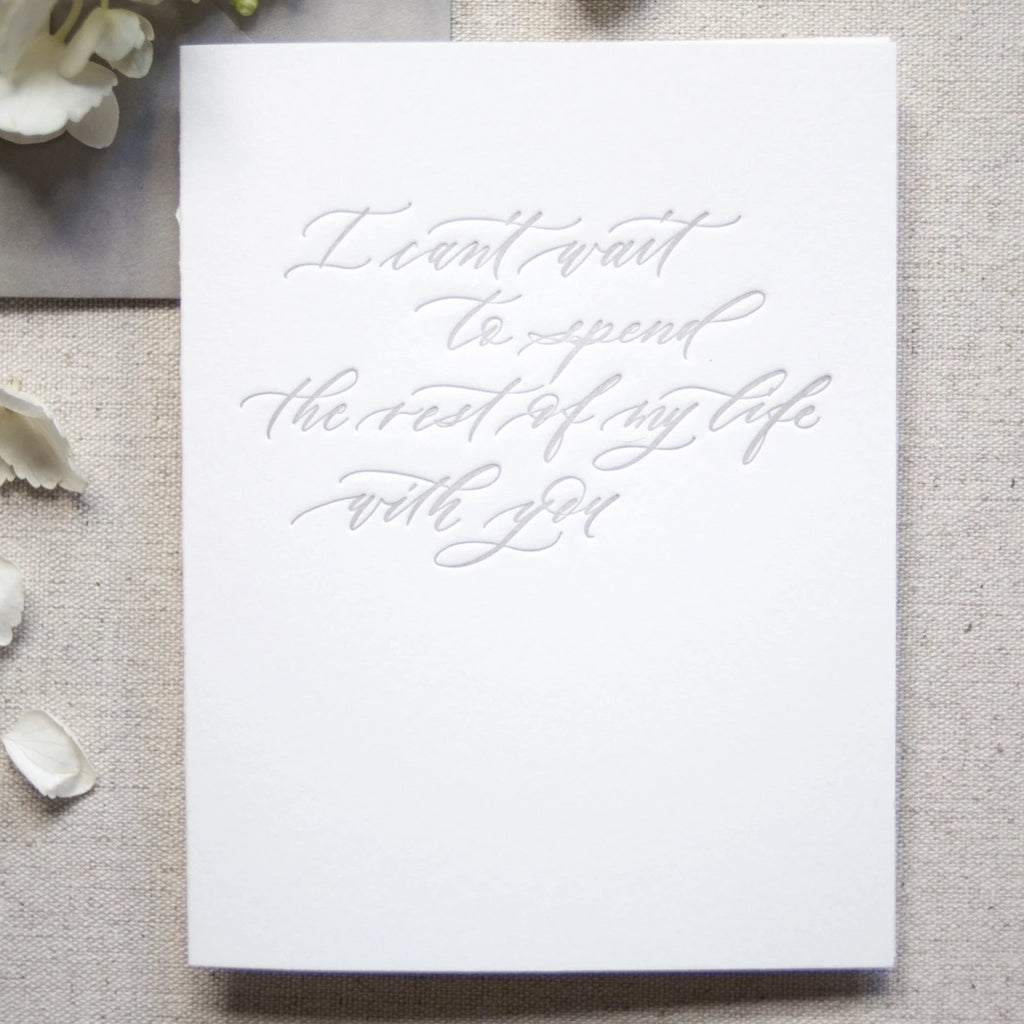 I can't wait
to spend
the rest of my life
with you